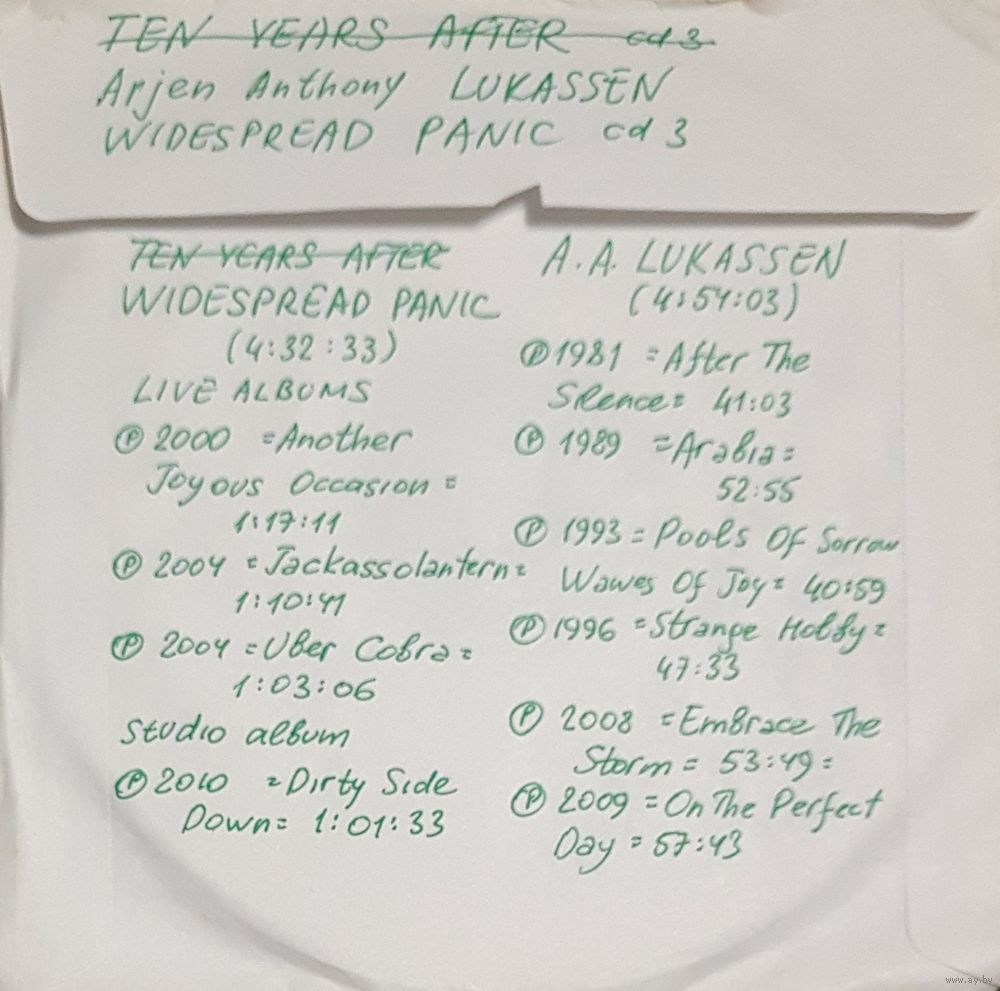 TEN YEARS AFTER cd 3
Arjen Anthony LUKASSEN
WIDESPREAD PANIC cd 3
TEN YEARS AFTER
WIDESPREAD PANIC
(4:32:33)
LIVE ALBUMS
Ⓟ 2000 = Another
Joyous Occasion =
1:17:11
Ⓟ 2004 = Jackassolantern =
1:10:41
Ⓟ 2004 = Uber Cobra =
1:03:06
Studio album
Ⓟ 2010 = Dirty Side
Down = 1:01:33
A.A. LUKASSEN
(4:54:03)
Ⓟ 1981 = After The
Silence = 41:03
Ⓟ 1989 = Arabia =
52:55
Ⓟ 1993 = Pools Of Sorrow
Wawes Of Joy = 40:59
Ⓟ 1996 = Strange Hobby =
47:33
Ⓟ 2008 = Embrace The
Storm = 53:49 =
Ⓟ 2009 = On The Perfect
Day = 57:43
www.ay.by